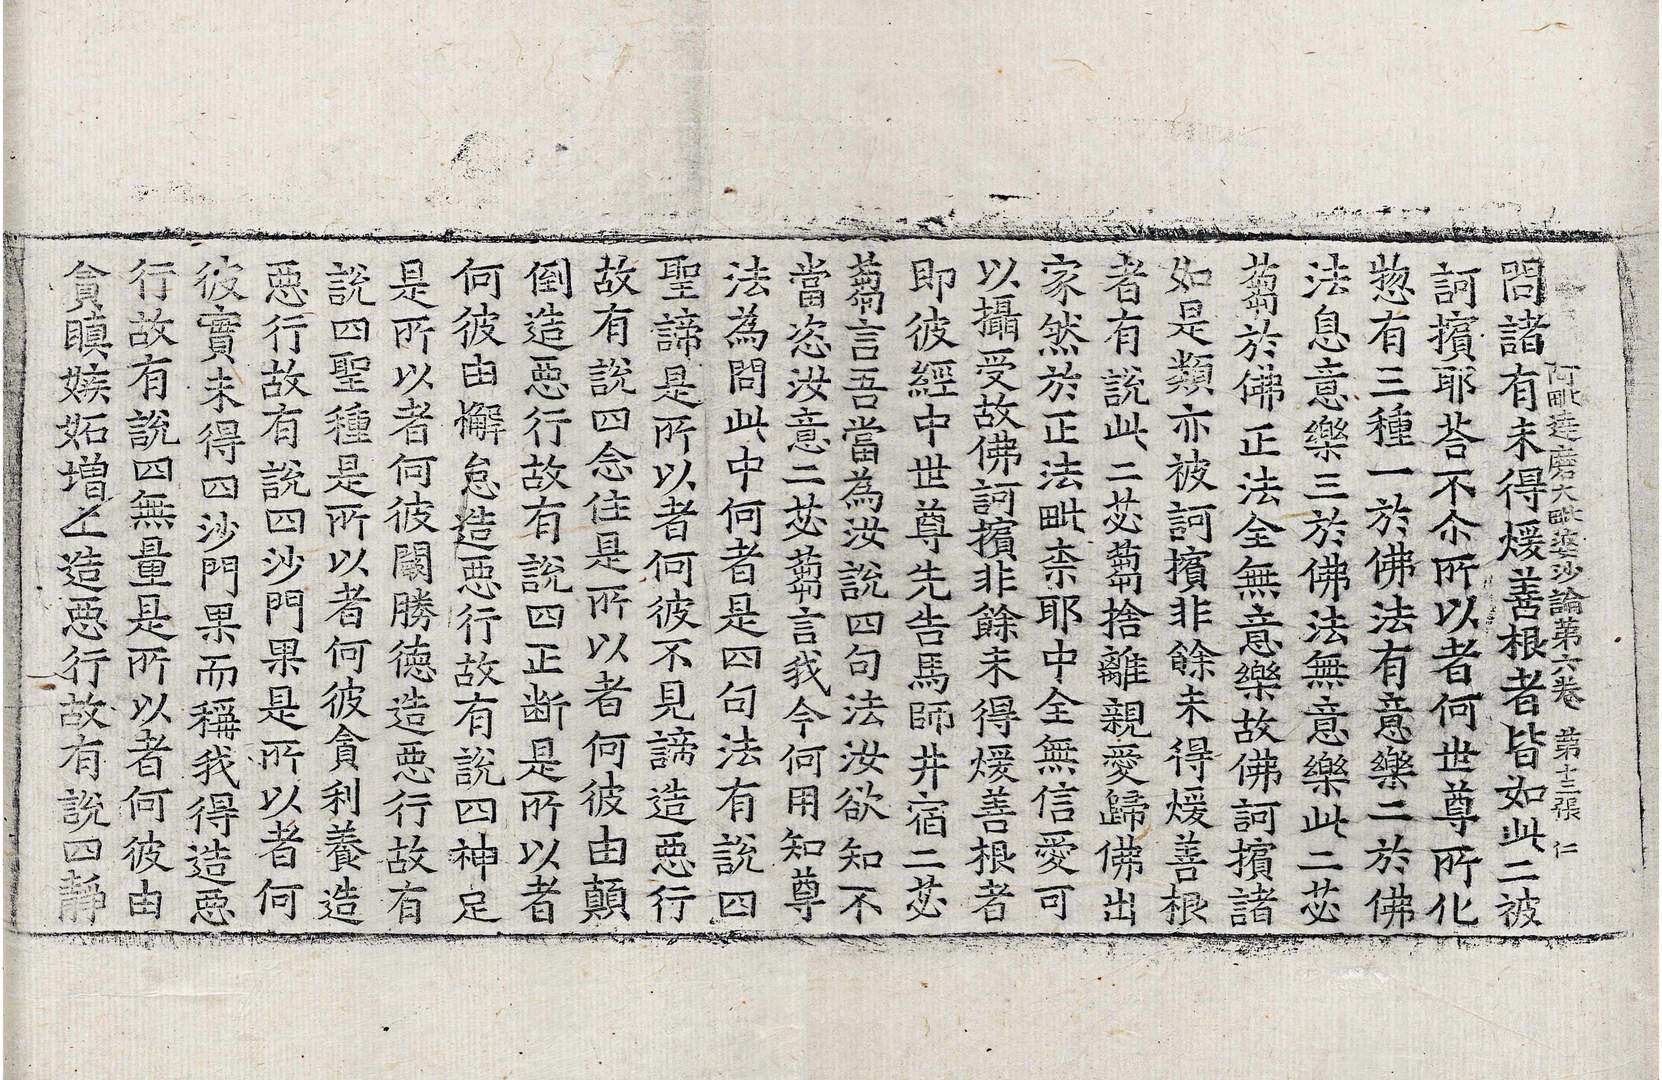 阿毗達磨大毗婆沙論第六卷　第十三張　仁
問諸有未得煖善根者皆如此二被
訶擯耶荅不尒所以者何世尊所化
惣有三種一於佛法有意樂二於佛
法息意樂三於佛法無意樂此二苾
蒭於佛正法全無意樂故佛訶擯諸
如是類亦被訶擯非餘未得煖善根
者有說此二苾蒭捨離親愛歸佛出
家然於正法毗柰耶中全無信愛可
以攝受故佛訶擯非餘未得煖善根者
即彼經中世尊先告馬師井宿二苾
蒭言吾當為汝說四句法汝欲知不
當恣汝意二苾蒭言我今何用知尊
法為問此中何者是四句法有說四
聖諦是所以者何彼不見諦造惡行
故有說四念住是所以者何彼由顛
倒造惡行故有說四正断是所以者
何彼由懈怠造惡行故有說四神足
是所以者何彼闕勝德造惡行故有
說四聖種是所以者何彼貪利養造
惡行故有說四沙門果是所以者何
彼實未得四沙門果而稱我得造惡
行故有說四無量是所以者何彼由
貪瞋嫉妬增上造惡行故有說四靜